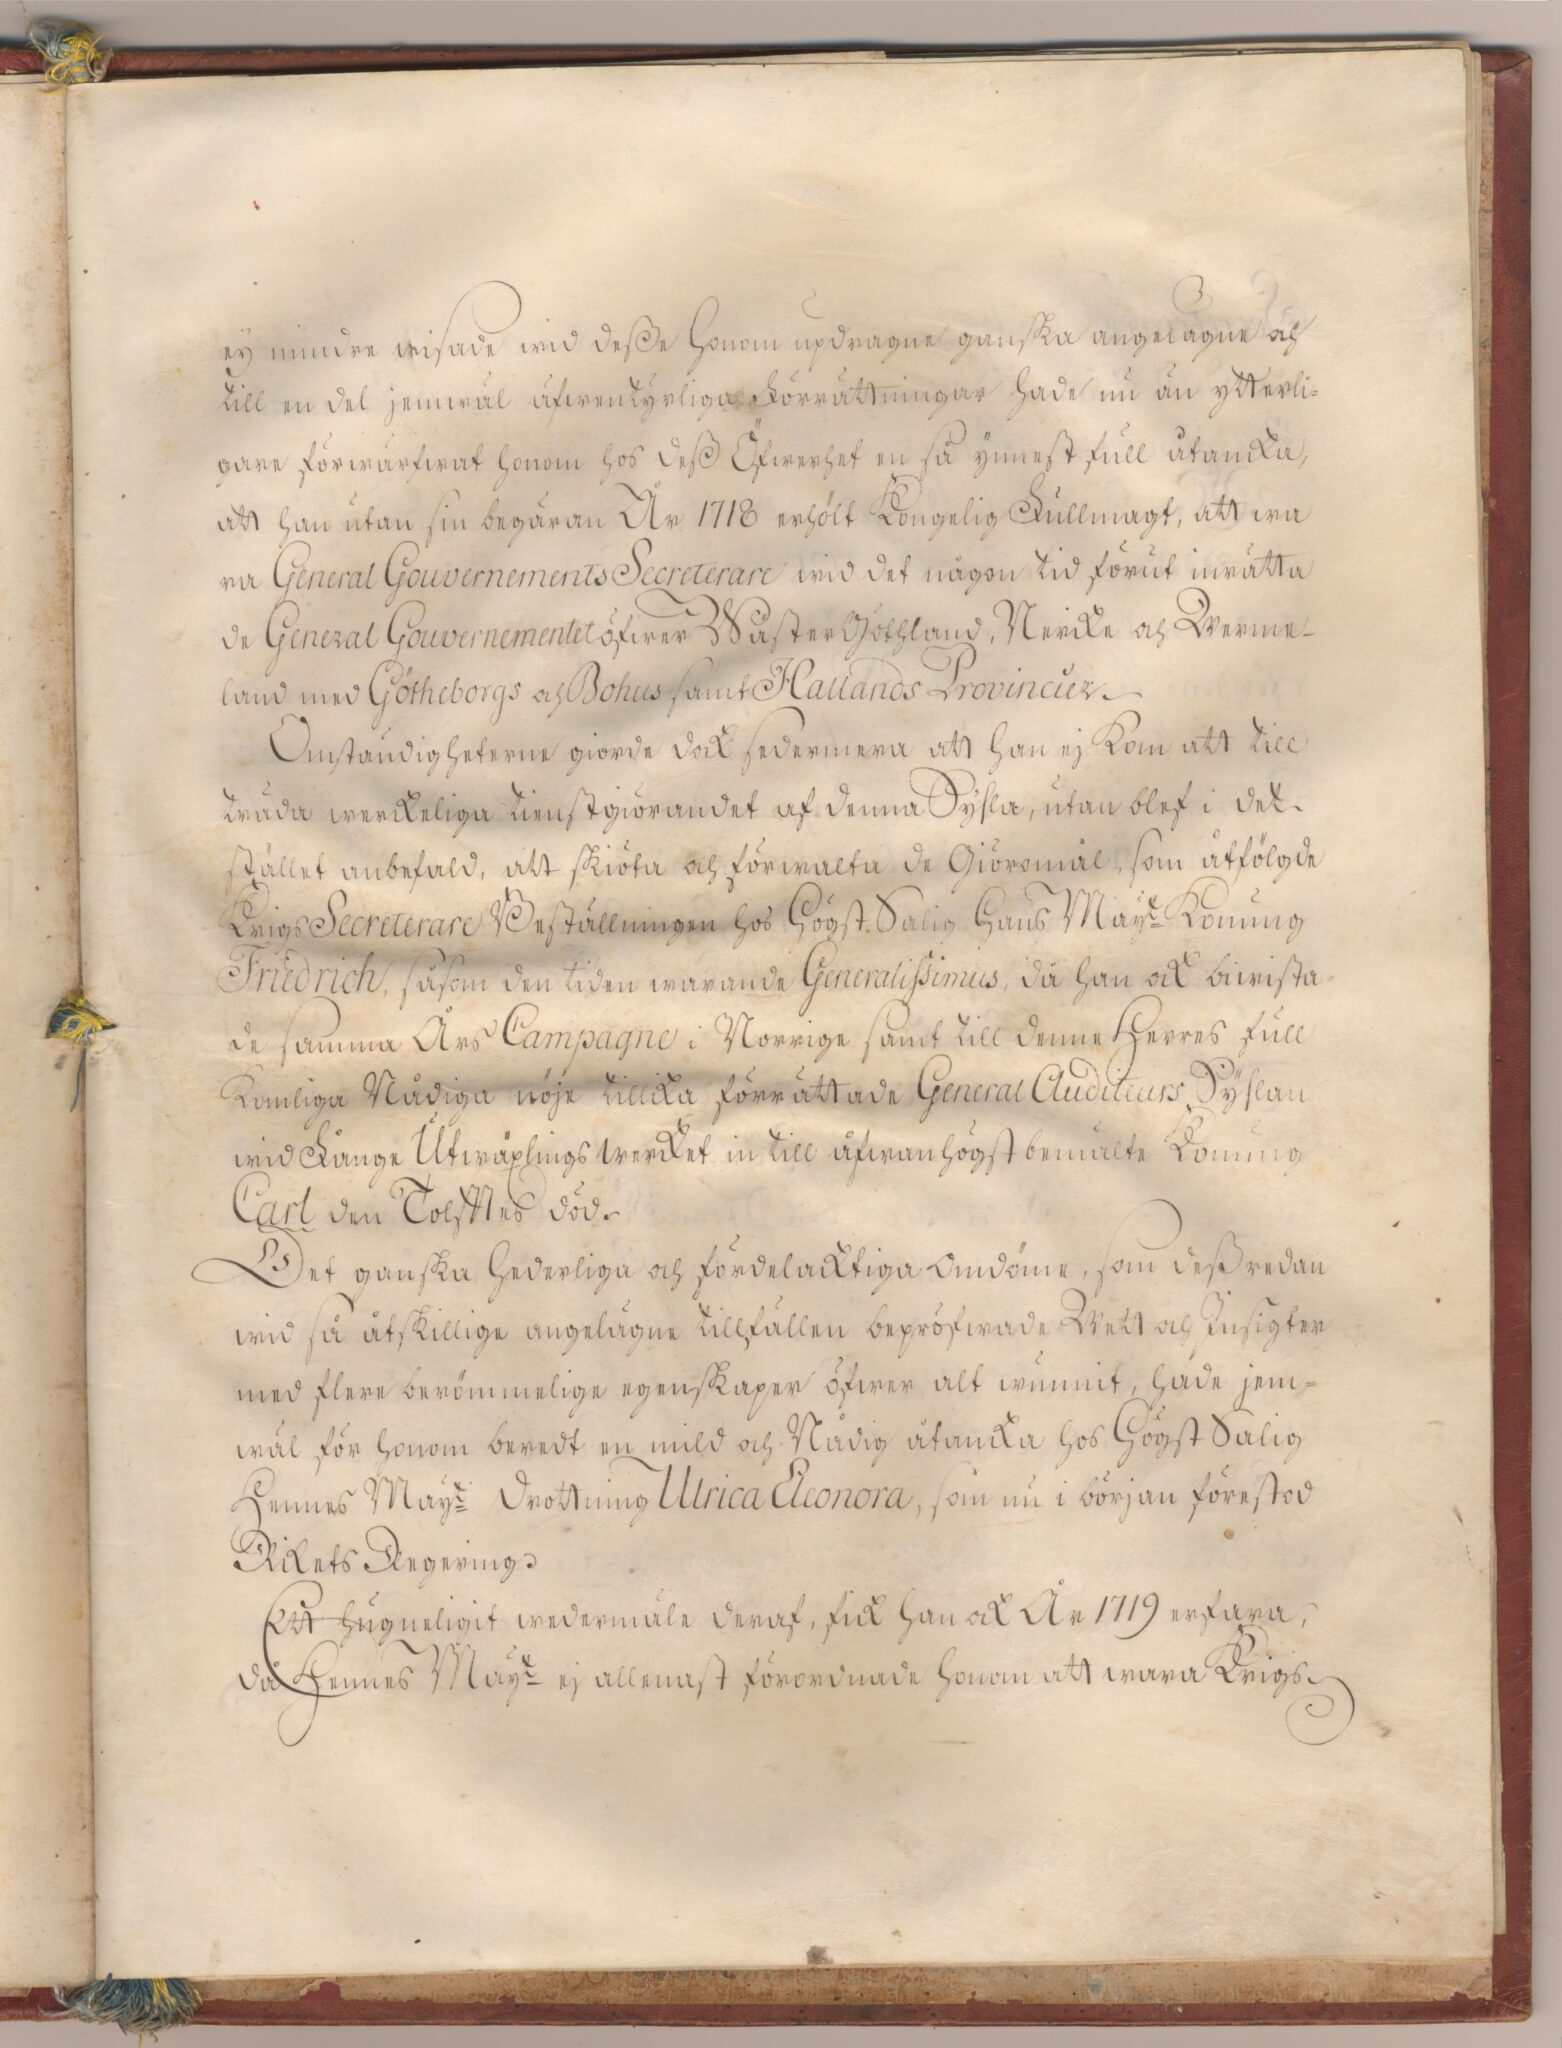 ey mindre wisade wid deße honom updragne ganska angelägne och
till en del jemwäl äfwentyrliga Förrättningar hade nu än ytterli-
gare förwärfwat honom hos deß Öfwerhet en så ynnest full åtancka,
att han utan sin begäran År 1718 erhölt Kongelig Fullmagt, att wa
ra General Gouvernements Secreterare wid det någon tid förut inrätta
de General Gouvernementet öfwer Wäster Göthland, Nericke och Werme-
land med Götheborgs och Bohus samt Hallands Provincier.
Omständigheterne giorde dock sedermera att han ej kom att till
träda werckeliga tienstgiörandet af denna Syßla, utan blef i det
stället anbefald, att skiöta och förwalta de Giöromål, som åtfölgde
Krigs Secreterare Beställningen hos Högst Salig Hans Mayt Konung
Friedrich, såsom den tiden warande Generalissimus, då han ock biwista-
de samma Års Campagne i Norrige samt till denne Herres full
komliga Nådiga nöje tillika förrättade General Auditeurs Syßlan
wid Fånge Utwäxlings wercket in till åfwanhögstbemälte Konung
Carl den Tolfftes död.
Det ganska hederliga och fördelacktiga omdöme, som deß redan
wid så åtskillige angelägne tillfällen bepröfwade Wett och Insigter
med flere berömmelige egenskaper öfwer alt wunnit, hade jem-
wäl för honom beredt en mild och Nådig åtancka hos Högst Salig
Hennes Mayt Drottning Ulrica Eleonora, som nu i början förestod
Rikets Regering.
Ett hugneligit wedermäle deraf, fick han ock År 1719 erfara,
då Hennes Mayt ej allenast förordnade honom att wara Krigs